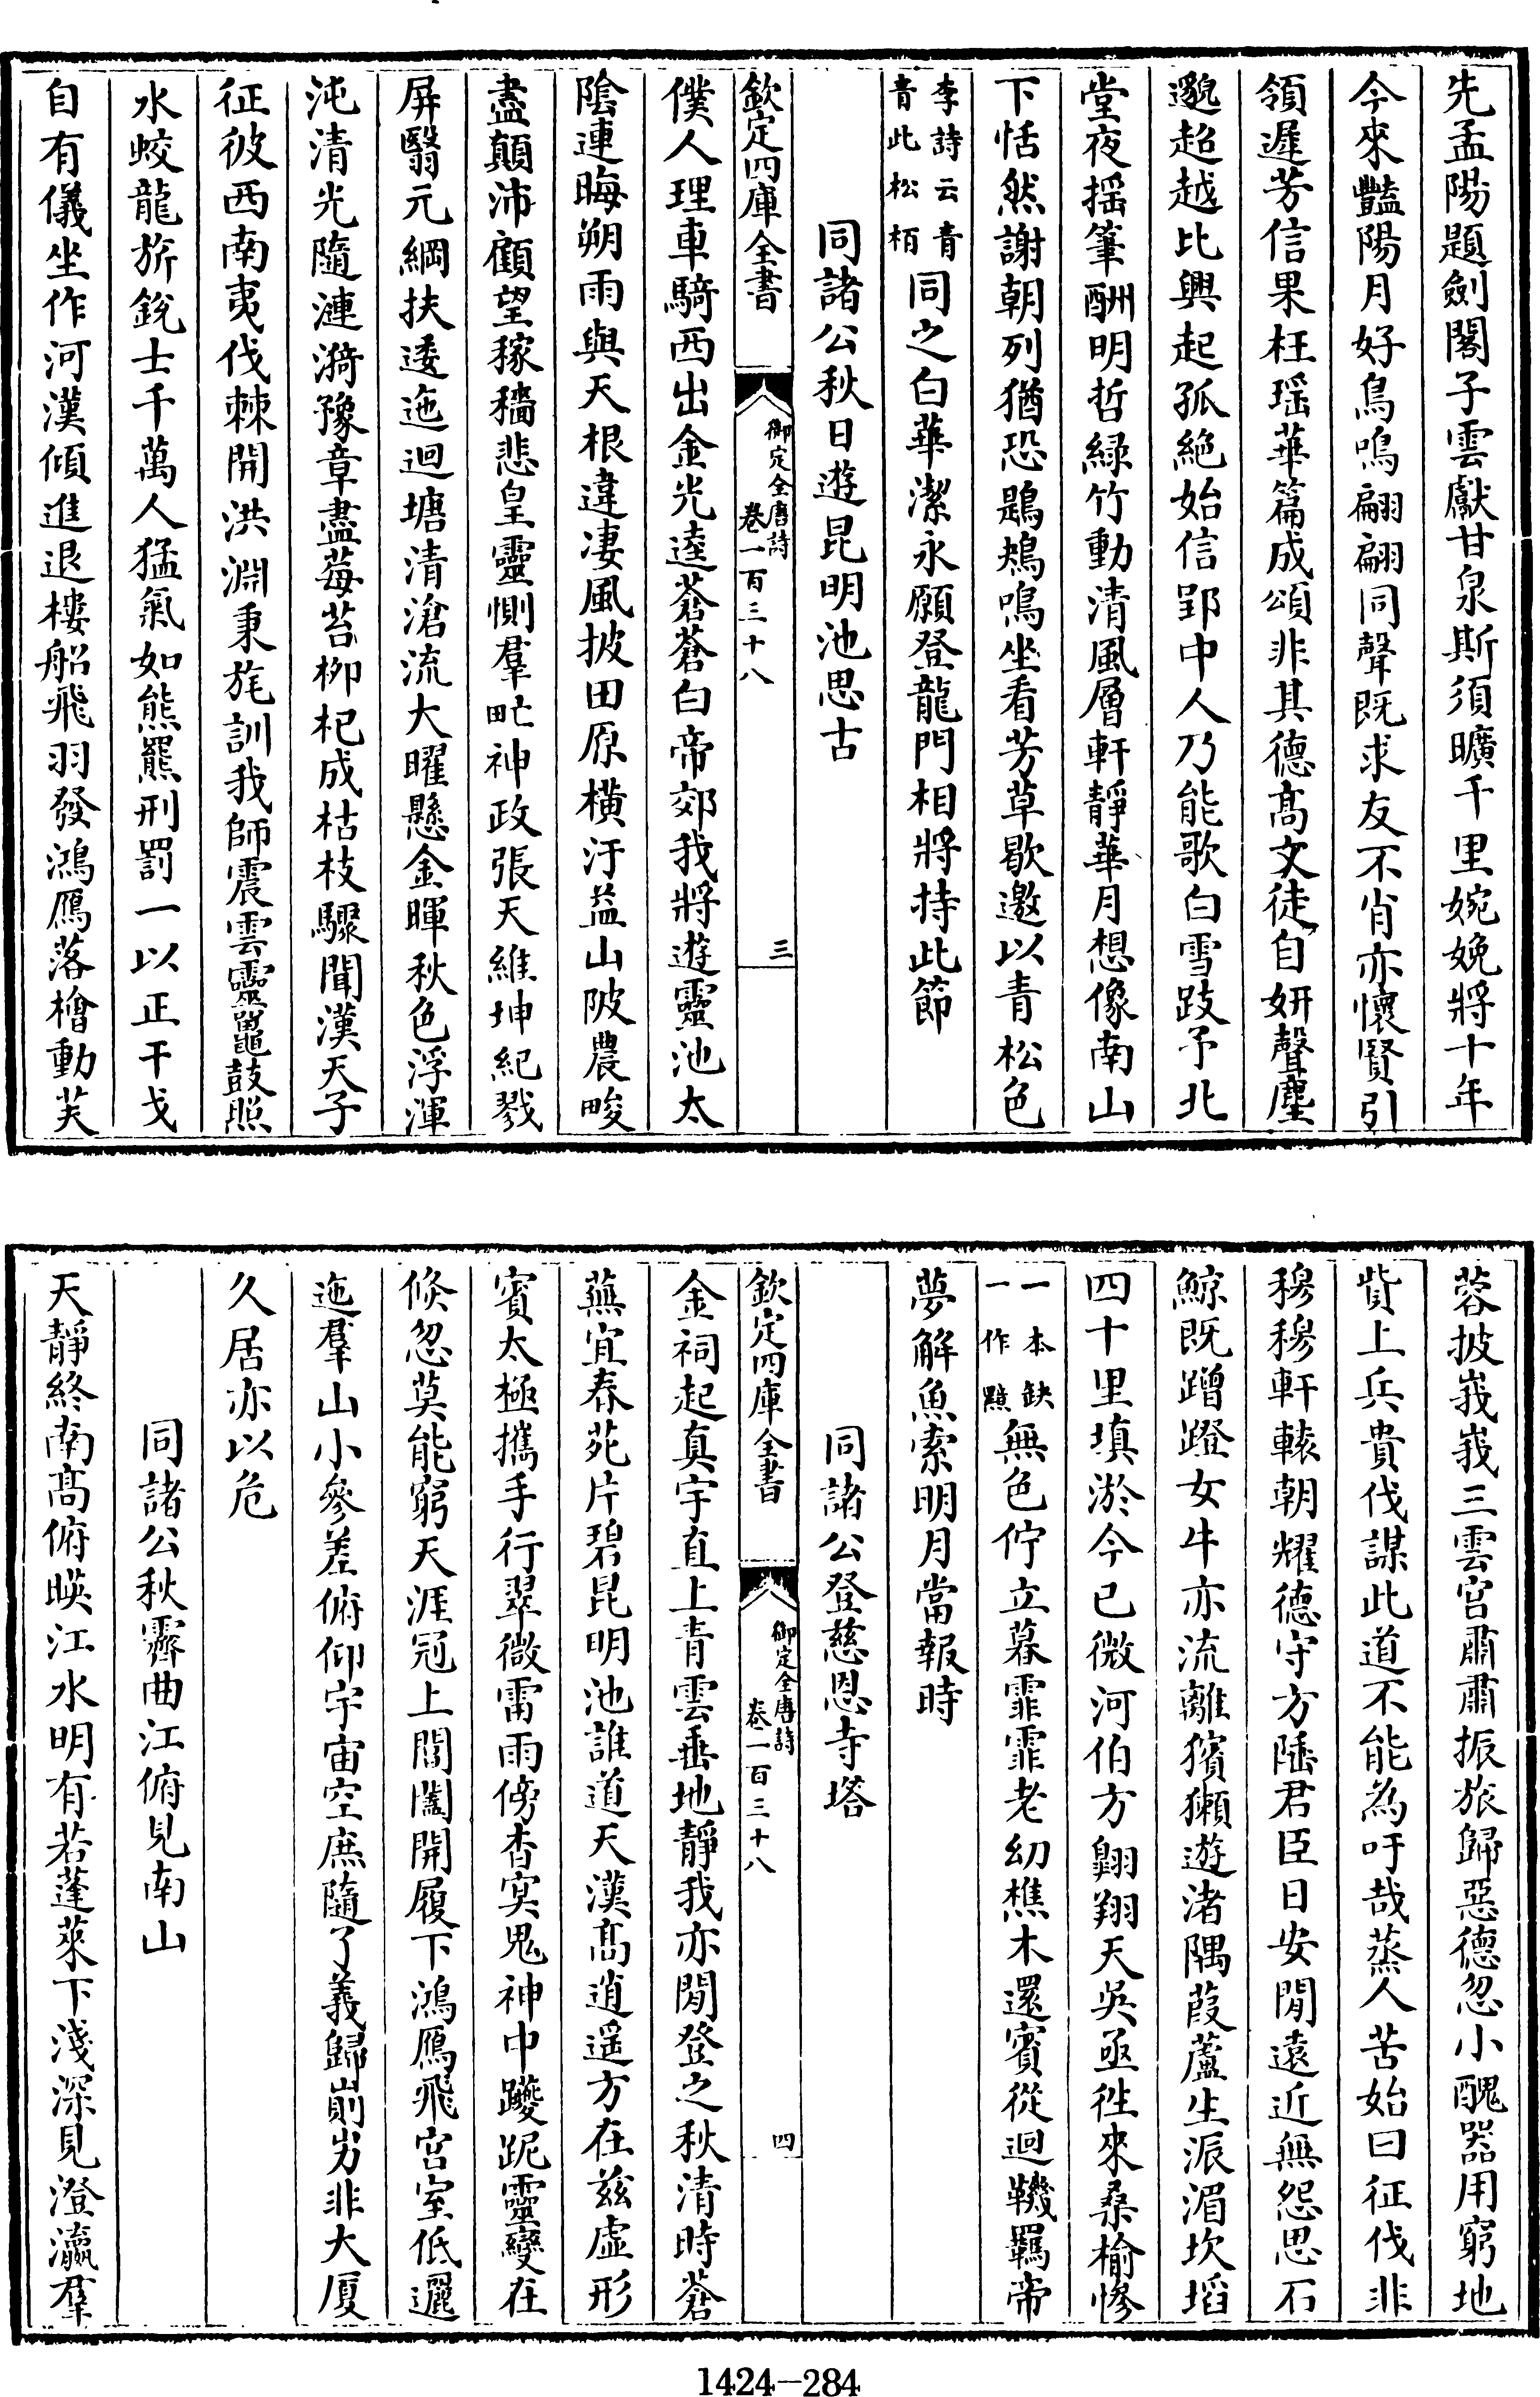 先孟陽題劍閣子雲獻甘泉斯須曠千里婉娩將十年
今來豔陽月好鳥鳴翩翩同聲既求友不肖亦懷賢引
領遲芳信果枉瑶華篇成頌非其德高文徒自妍聲塵
邈超越比興起孤絶始信郢中人乃能歌白雪跂予北
堂夜揺筆酬明哲緑竹動清風層軒靜華月想像南山
下恬然謝朝列猶恐鶗鴂鳴坐看芳草歇邀以青松色
李詩云青青此松栢同之白華潔永願登龍門相將持此節
同諸公秋日遊昆明池思古
欽定四庫全書
御定全唐詩
卷一百三十八
三
僕人理車騎西出金光逵蒼蒼白帝郊我將遊靈池太
陰連晦朔雨與天根違凄風披田原橫汙益山陂農畯
盡顛沛顧望稼穡悲皇靈惻羣甿神政張天維坤紀戮
屏翳元綱扶逶迤迴塘清滄流大曜懸金暉秋色浮渾
沌清光隨漣漪豫章盡莓苔栁杞成枯枝驟聞漢天子
征彼西南夷伐棘開洪淵秉旄訓我師震雲靈鼉鼓照
水蛟龍旂銳士千萬人猛氣如熊羆刑罰一以正干戈
自有儀坐作河漢傾進退樓船飛羽發鴻鴈落檜動芙
蓉披峩峩三雲宫肅肅振旅歸惡德忽小醜器用窮地
貲上兵貴伐謀此道不能為吁哉蒸人苦始曰征伐非
穆穆軒轅朝耀德守方陲君臣日安閒遠近無怨思石
鯨既蹭蹬女牛亦流離獱獺遊渚隅葭蘆生派湄坎埳
四十里填淤今已微河伯方翺翔天吳亟徃來桑榆慘
一本缺一作黯無色佇立暮霏霏老幼樵木還賓從迴鞿羈帝
夢解魚索明月當報時
同諸公登慈恩寺塔
欽定四庫全書
御定全唐詩
卷一百三十八
四
金祠起真宇直上青雲垂地靜我亦閒登之秋清時蒼
蕪宜春苑片碧昆明池誰道天漢髙逍遥方在兹虛形
賓太極攜手行翠微雷雨傍杳冥鬼神中躨跜靈變在
倐忽莫能窮天涯冠上閶闔開履下鴻鴈飛宫室低邐
迤羣山小參差俯仰宇宙空庶隨了義歸崱屴非大厦
久居亦以危
同諸公秋霽曲江俯見南山
天靜終南髙俯暎江水明有若蓬萊下淺深見澄瀛羣
1424—284